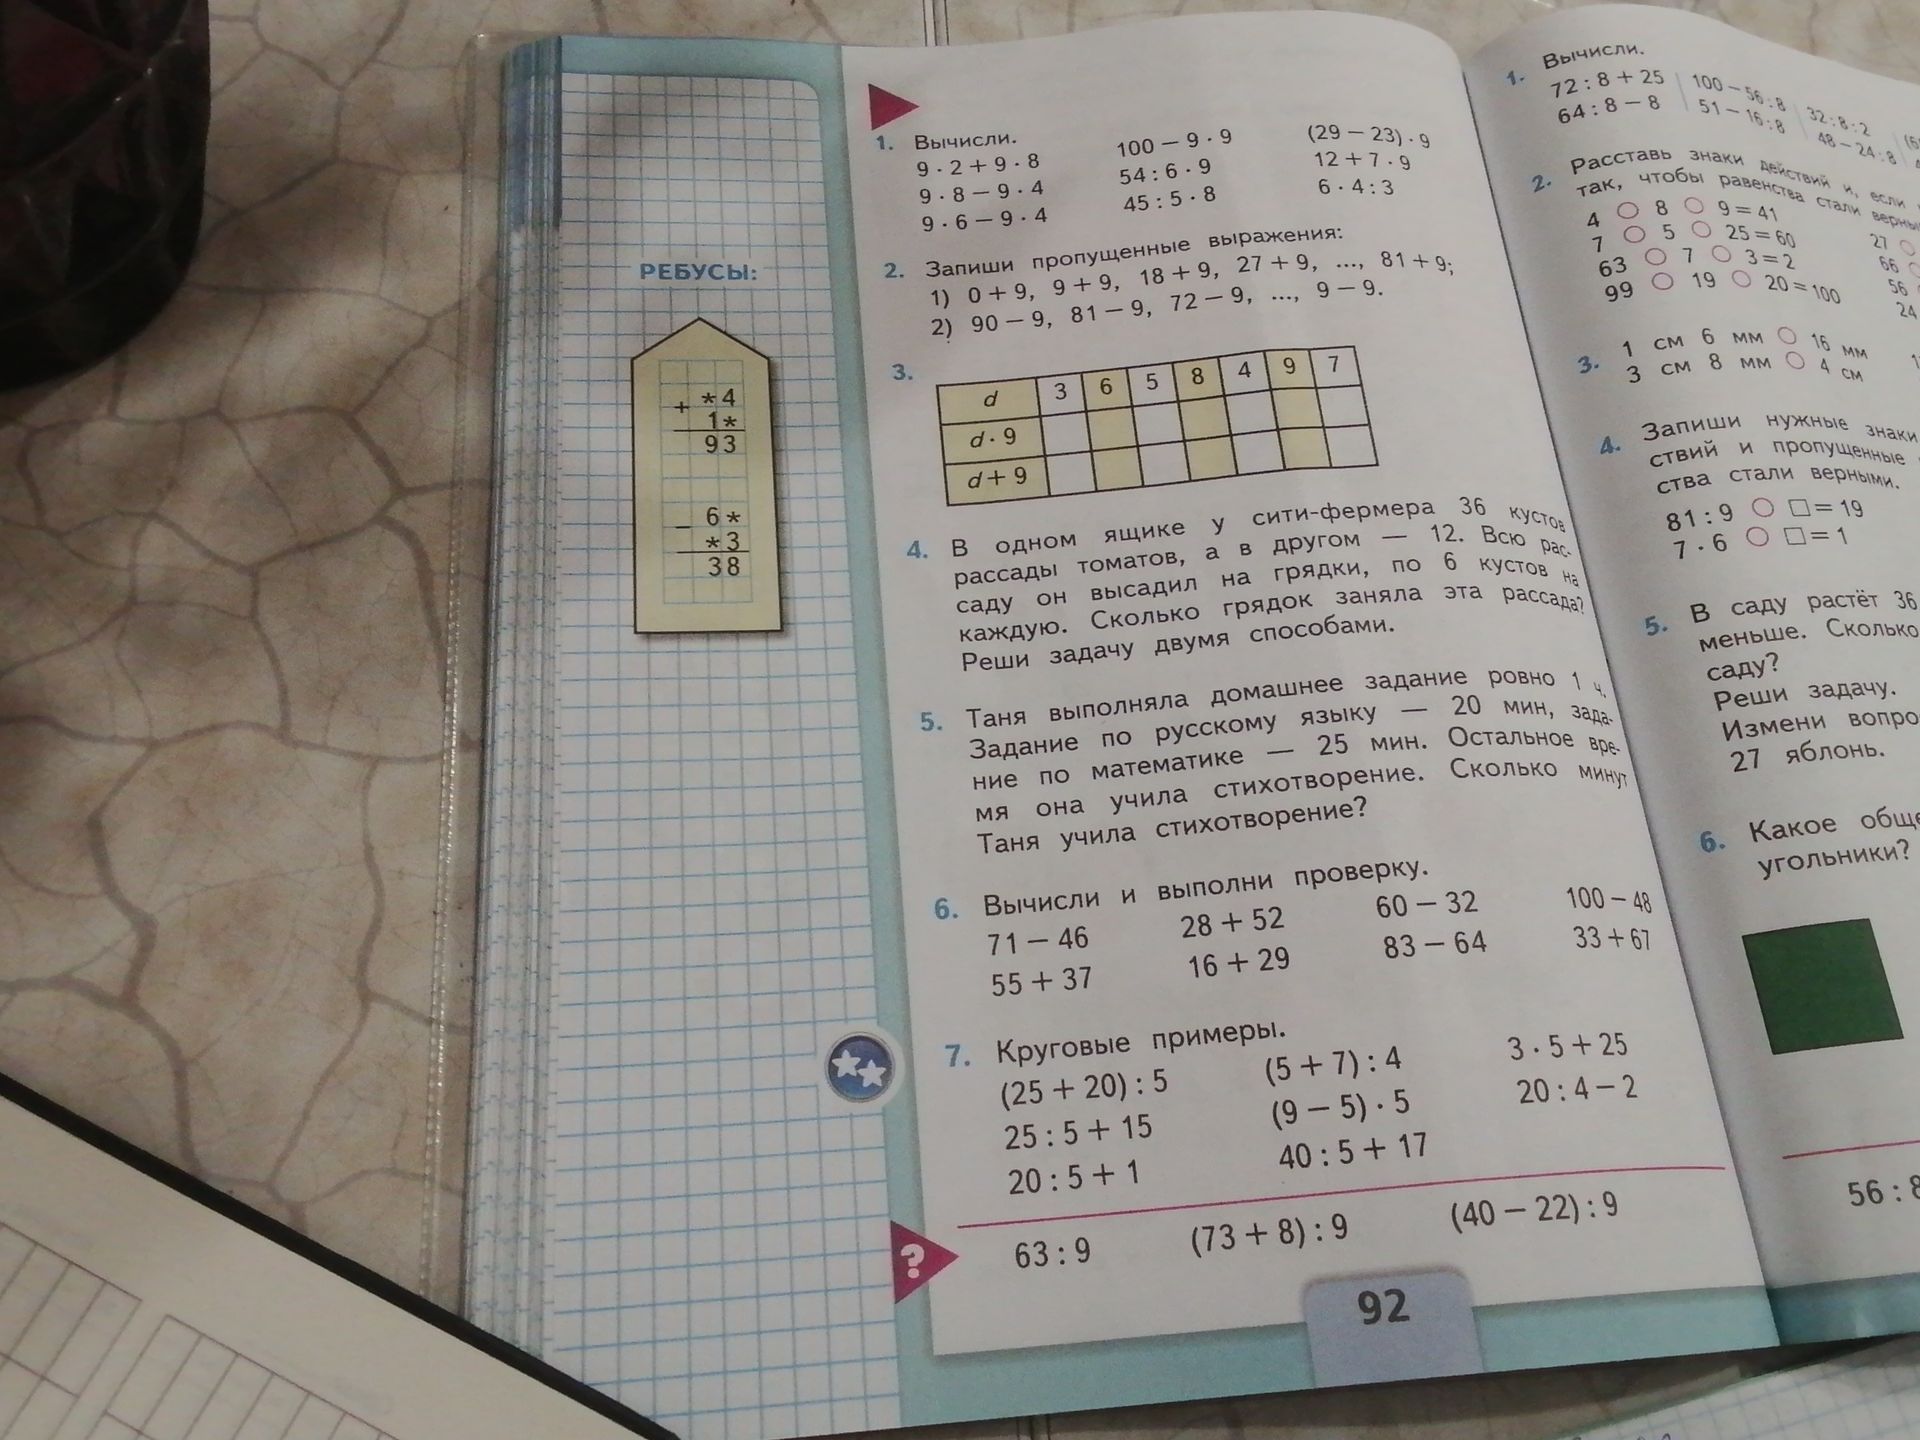 РЕБУСЫ:
+ *4
1*
93
− 6*
*3
38
1. Вычисли.
9 · 2 + 9 · 8   100 − 9 · 9   (29 − 23) · 9
9 · 8 − 9 · 4   54 : 6 · 9   12 + 7 · 9
9 · 6 − 9 · 4   45 : 5 · 8   6 · 4 : 3
2. Запиши пропущенные выражения:
1) 0 + 9, 9 + 9, 18 + 9, 27 + 9, ..., 81 + 9;
2) 90 − 9, 81 − 9, 72 − 9, ..., 9 − 9.
3.
d 3 6 5 8 4 9 7
d · 9
d + 9
4. В одном ящике у сити-фермера 36 кустов
рассады томатов, а в другом — 12. Всю рас-
саду он высадил на грядки, по 6 кустов на
каждую. Сколько грядок заняла эта рассада?
Реши задачу двумя способами.
5. Таня выполняла домашнее задание ровно 1 ч.
Задание по русскому языку — 20 мин, зада-
ние по математике — 25 мин. Остальное вре-
мя она учила стихотворение. Сколько минут
Таня учила стихотворение?
6. Вычисли и выполни проверку.
71 − 46   28 + 52   60 − 32   100 − 48
55 + 37   16 + 29   83 − 64   33 + 67
7. Круговые примеры.
(25 + 20) : 5   (5 + 7) : 4   3 · 5 + 25
25 : 5 + 15   (9 − 5) · 5   20 : 4 − 2
20 : 5 + 1   40 : 5 + 17
?
63 : 9   (73 + 8) : 9   (40 − 22) : 9
92
1. Вычисли.
72 : 8 + 25   100 − 56 : 8   32 : 8 : 2
64 : 8 − 8   51 − 16 : 8   48 − 24 : 8
2. Расставь знаки действий и, если
так, чтобы равенства стали верны
4 ○ 8 ○ 9 = 41   27 ○
7 ○ 5 ○ 25 = 60   66
63 ○ 7 ○ 3 = 2   56
99 ○ 19 ○ 20 = 100   24
3. 1 см 6 мм ○ 16 мм
3 см 8 мм ○ 4 см
4. Запиши нужные знаки
ствий и пропущенные
ства стали верными.
81 : 9 ○ □ = 19
7 · 6 ○ □ = 1
5. В саду растёт 36
меньше. Сколько
саду?
Реши задачу.
Измени вопро
27 яблонь.
6. Какое обще
угольники?
56 : 8